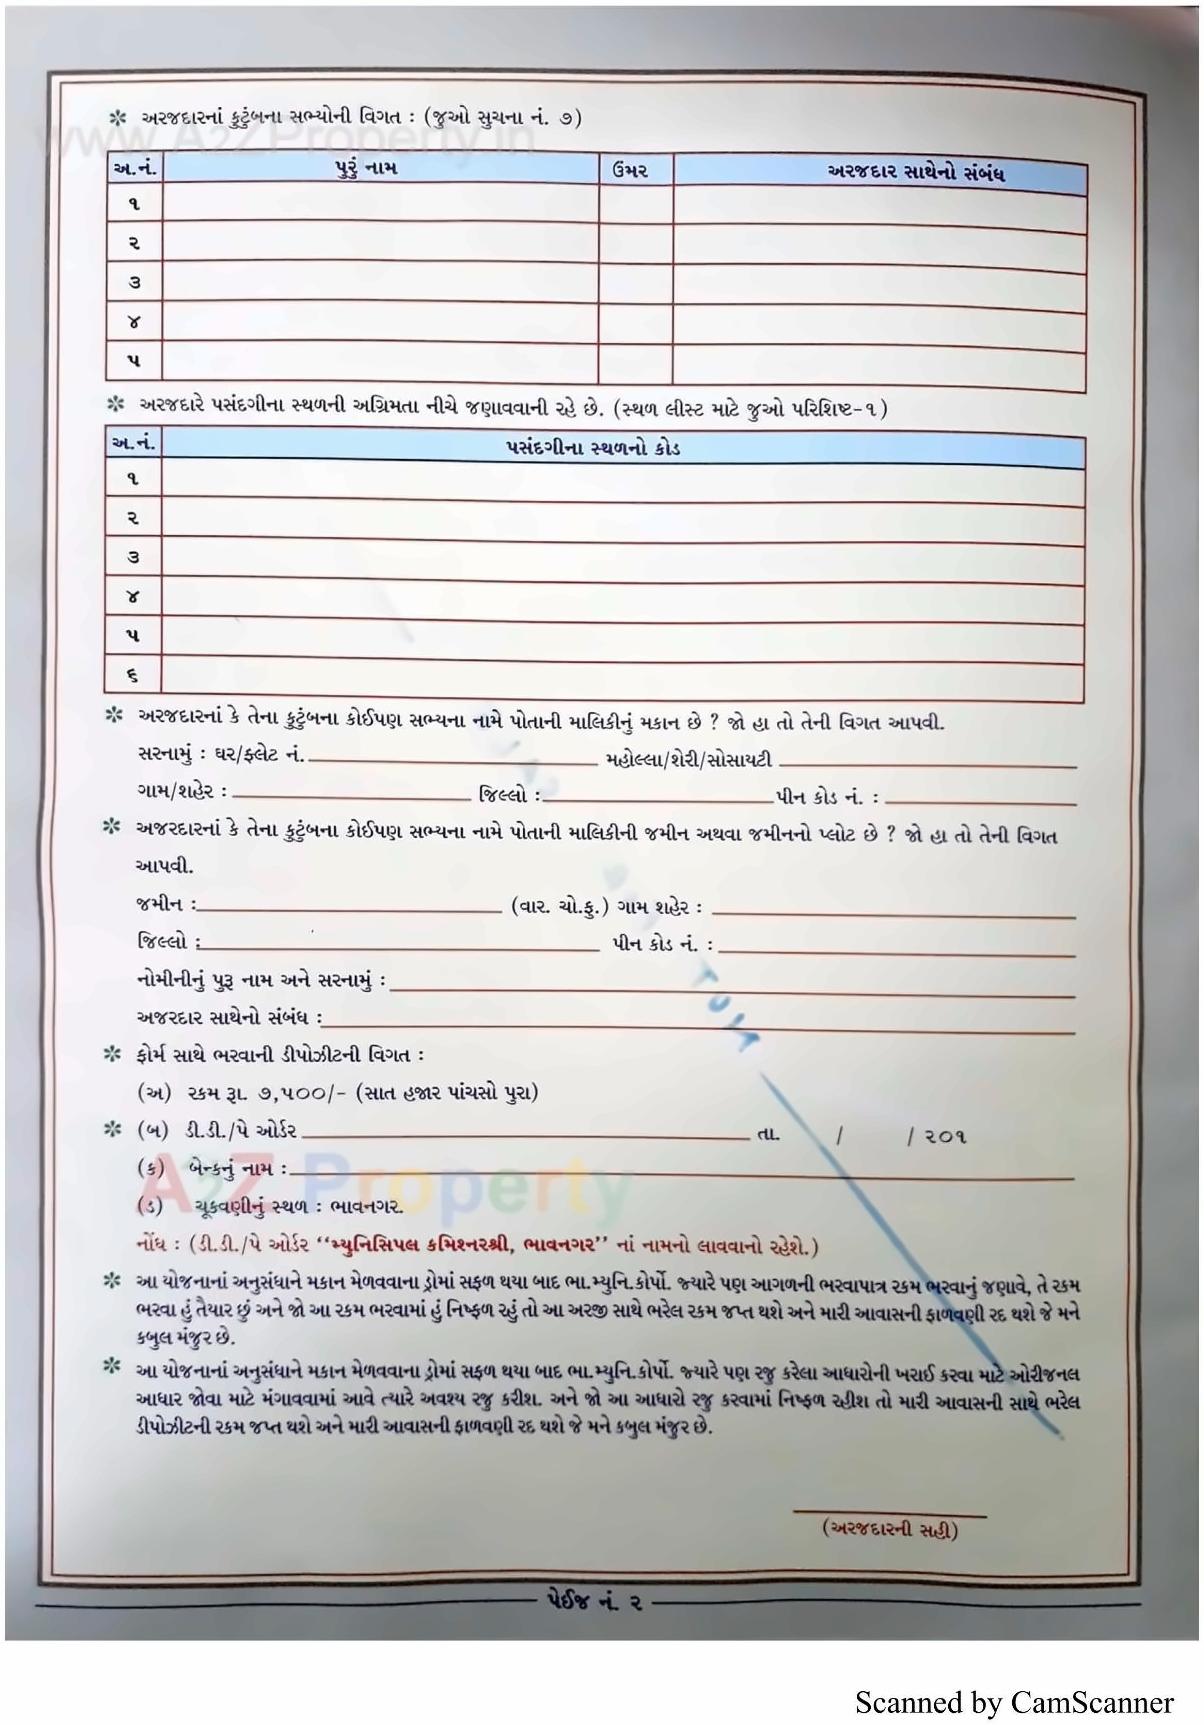 www.A2ZProperty.in
✻ અરજદારનાં કુટુંબના સભ્યોની વિગત : (જુઓ સુચના નં. ૭)
અ.નં. પુરું નામ ઉંમર અરજદાર સાથેનો સંબંધ
૧
૨
૩
૪
૫
✻ અરજદારે પસંદગીના સ્થળની અગ્રિમતા નીચે જણાવવાની રહે છે. (સ્થળ લીસ્ટ માટે જુઓ પરિશિષ્ટ-૧)
અ.નં. પસંદગીના સ્થળનો કોડ
૧
૨
૩
૪
૫
૬
✻ અરજદારનાં કે તેના કુટુંબના કોઈપણ સભ્યના નામે પોતાની માલિકીનું મકાન છે ? જો હા તો તેની વિગત આપવી.
સરનામું : ઘર/ફ્લેટ નં. મહોલ્લા/શેરી/સોસાયટી
ગામ/શહેર : જિલ્લો : પીન કોડ નં. :
✻ અજરદારનાં કે તેના કુટુંબના કોઈપણ સભ્યના નામે પોતાની માલિકીની જમીન અથવા જમીનનો પ્લોટ છે ? જો હા તો તેની વિગત
આપવી.
જમીન : (વાર. ચો.ફુ.) ગામ શહેર :
જિલ્લો : પીન કોડ નં. :
નોમીનીનું પુરૂ નામ અને સરનામું :
અજરદાર સાથેનો સંબંધ :
✻ ફોર્મ સાથે ભરવાની ડીપોઝીટની વિગત :
(અ) રકમ રૂા. ૭,૫૦૦/- (સાત હજાર પાંચસો પુરા)
✻ (બ) ડી.ડી./પે ઓર્ડર તા. / / ૨૦૧
(ક) બેન્કનું નામ :
A2Z Property
(ડ) ચૂકવણીનું સ્થળ : ભાવનગર.
નોંધ : (ડી.ડી./પે ઓર્ડર “મ્યુનિસિપલ કમિશ્નરશ્રી, ભાવનગર” નાં નામનો લાવવાનો રહેશે.)
✻ આ યોજનાનાં અનુસંધાને મકાન મેળવવાના ડ્રોમાં સફળ થયા બાદ ભા.મ્યુનિ.કોર્પો. જ્યારે પણ આગળની ભરવાપાત્ર રકમ ભરવાનું જણાવે, તે રકમ
ભરવા હું તૈયાર છું અને જો આ રકમ ભરવામાં હું નિષ્ફળ રહું તો આ અરજી સાથે ભરેલ રકમ જપ્ત થશે અને મારી આવાસની ફાળવણી રદ થશે જે મને
કબુલ મંજુર છે.
✻ આ યોજનાનાં અનુસંધાને મકાન મેળવવાના ડ્રોમાં સફળ થયા બાદ ભા.મ્યુનિ.કોર્પો. જ્યારે પણ રજુ કરેલા આધારોની ખરાઈ કરવા માટે ઓરીજનલ
આધાર જોવા માટે મંગાવવામાં આવે ત્યારે અવશ્ય રજુ કરીશ. અને જો આ આધારો રજુ કરવામાં નિષ્ફળ રહીશ તો મારી આવાસની સાથે ભરેલ
ડીપોઝીટની રકમ જપ્ત થશે અને મારી આવાસની ફાળવણી રદ થશે જે મને કબુલ મંજુર છે.
(અરજદારની સહી)
પેઈજ નં. ૨
Scanned by CamScanner